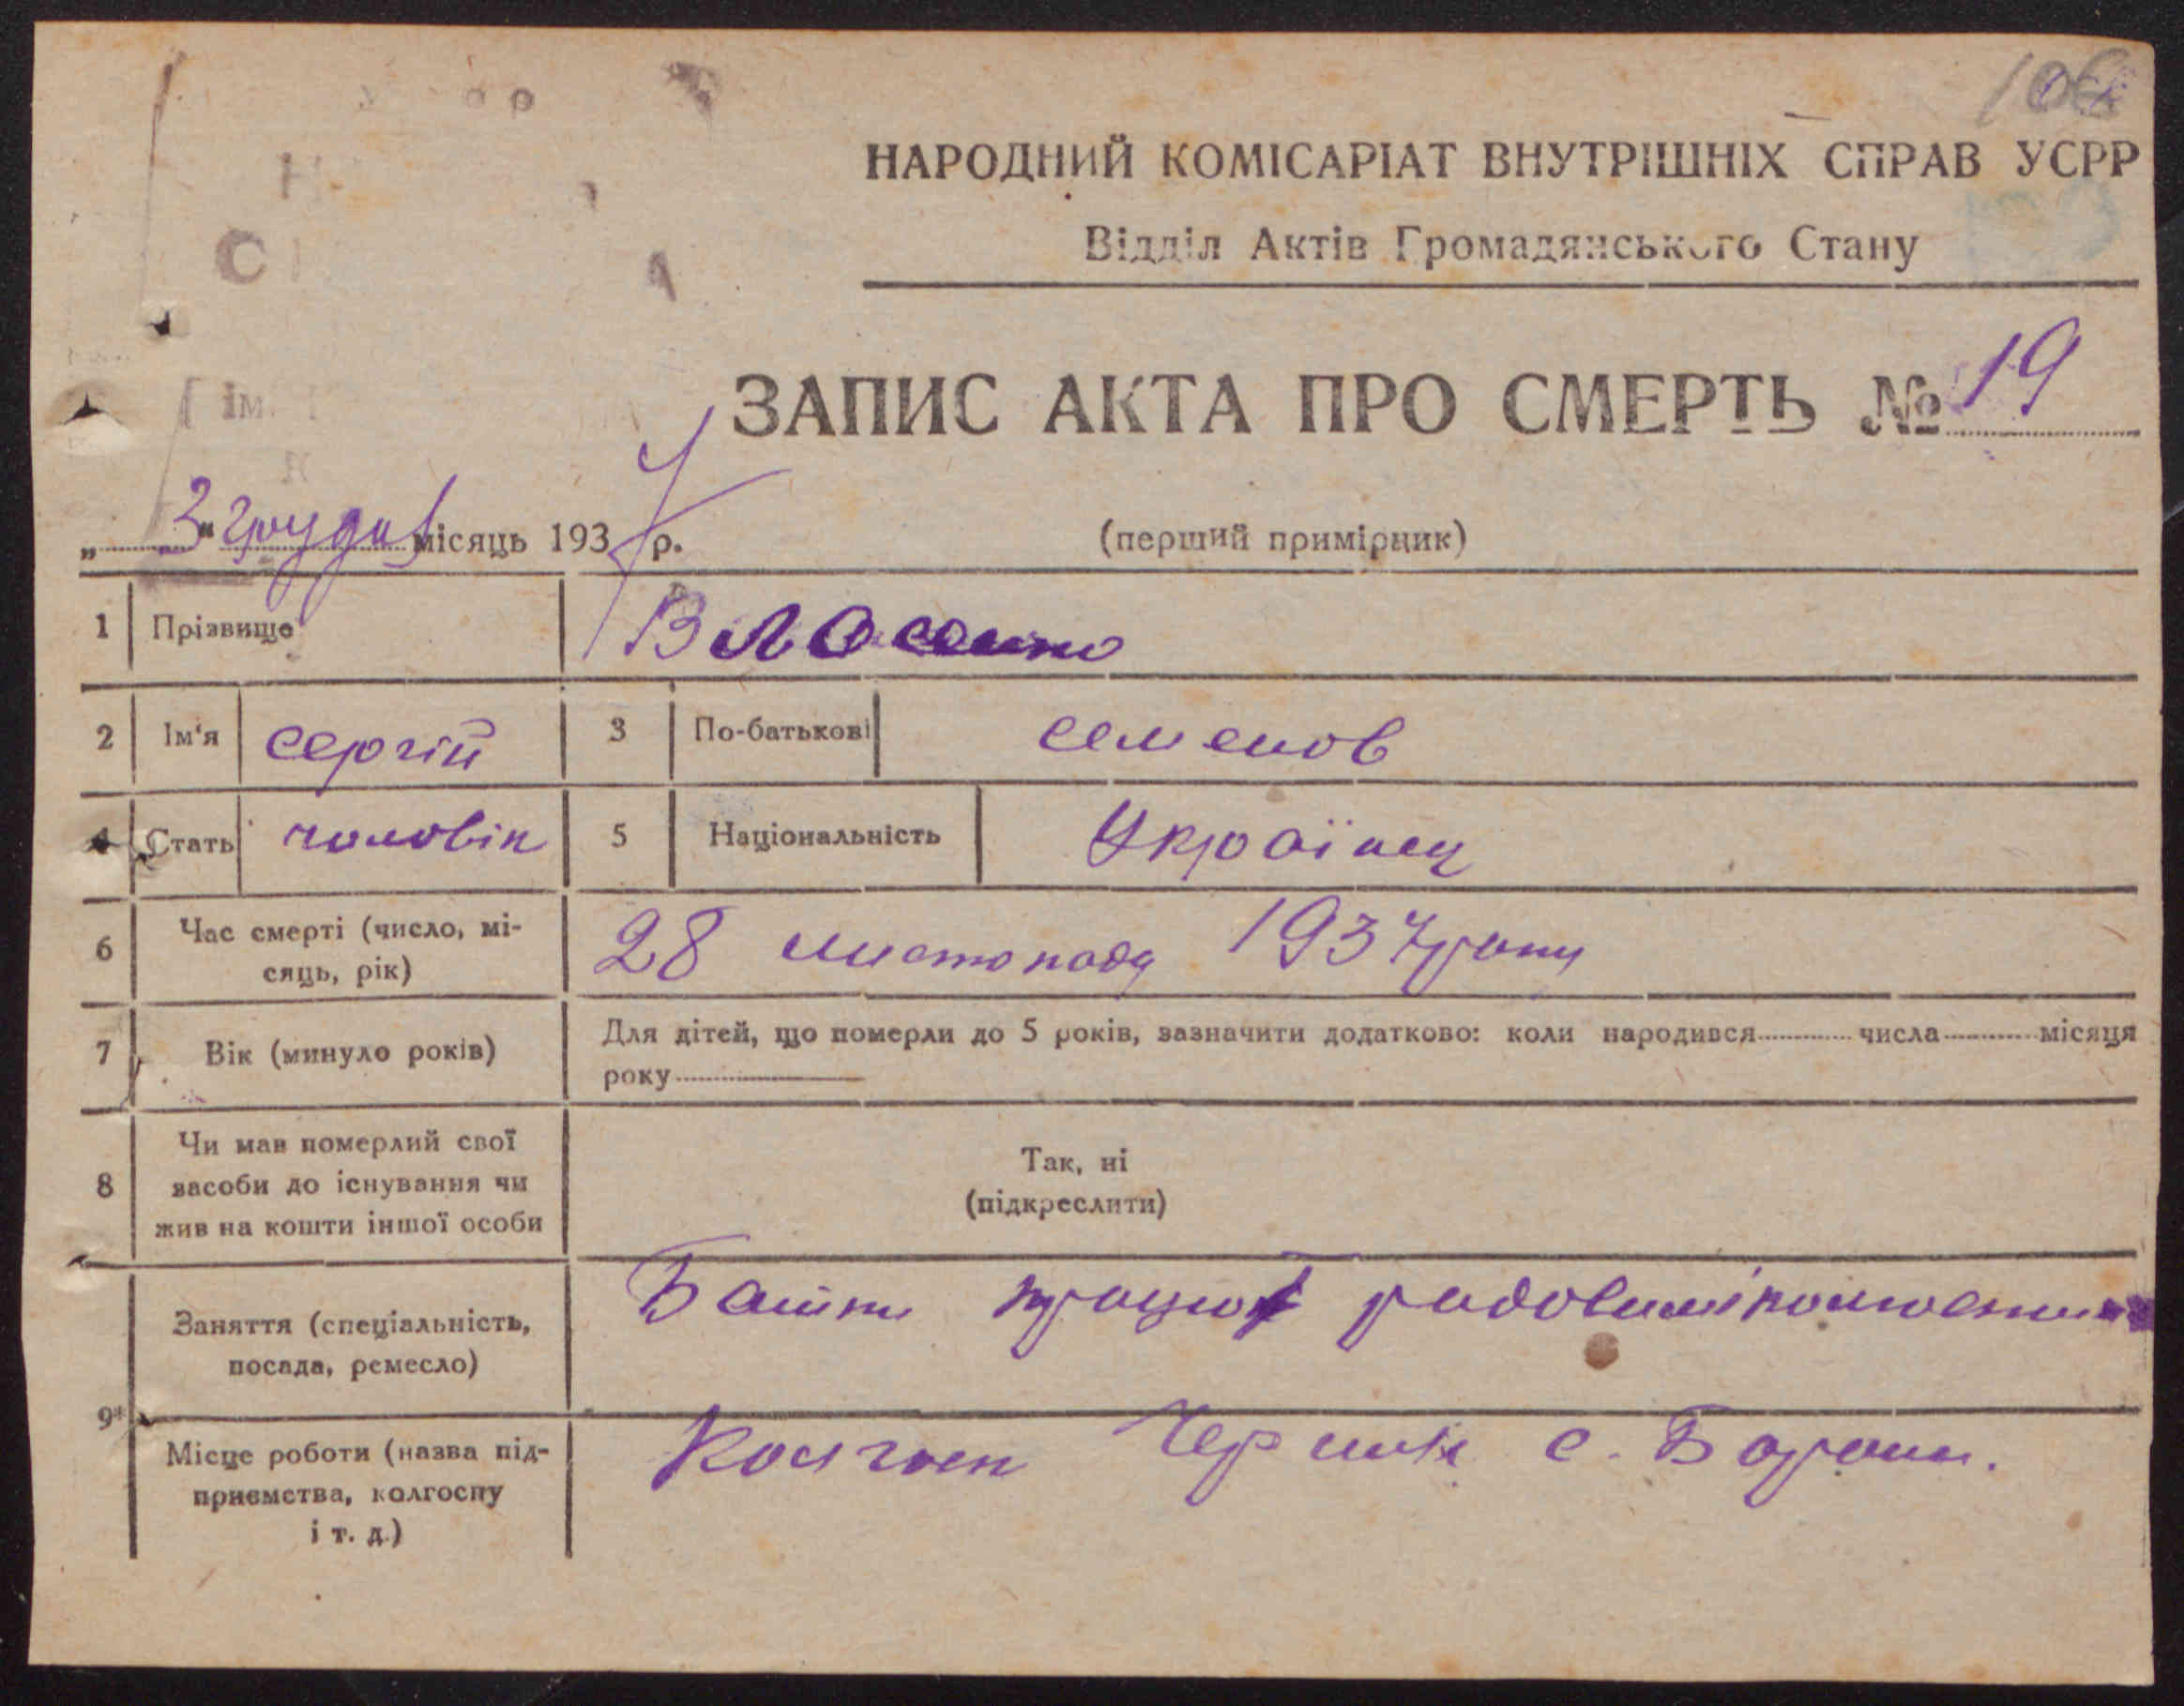 НАРОДНИЙ КОМІСАРІАТ ВНУТРІШНІХ СПРАВ УСРР
Відділ Актів Громадянського Стану
ЗАПИС АКТА ПРО СМЕРТЬ № 19
„3“ грудня місяць 1937 р.
(перший примірник)
1 Прізвище Власенко
2 Ім'я Сергій 3 По-батькові Семенов
4 Стать чоловік 5 Національність Українец
6 Час смерті (число, мі-
сяць, рік) 28 листопада 1937 року
7 Вік (минуло років) Для дітей, що померли до 5 років, зазначити додатково: коли народився числа місяця
року
8 Чи мав померлий свої
засоби до існування чи
жив на кошти іншої особи
Так, ні
(підкреслити)
9*
Заняття (спеціальність,
посада, ремесло) Батьки
Місце роботи (назва під-
приємства, колгоспу
і т. д.) Колгосп с.